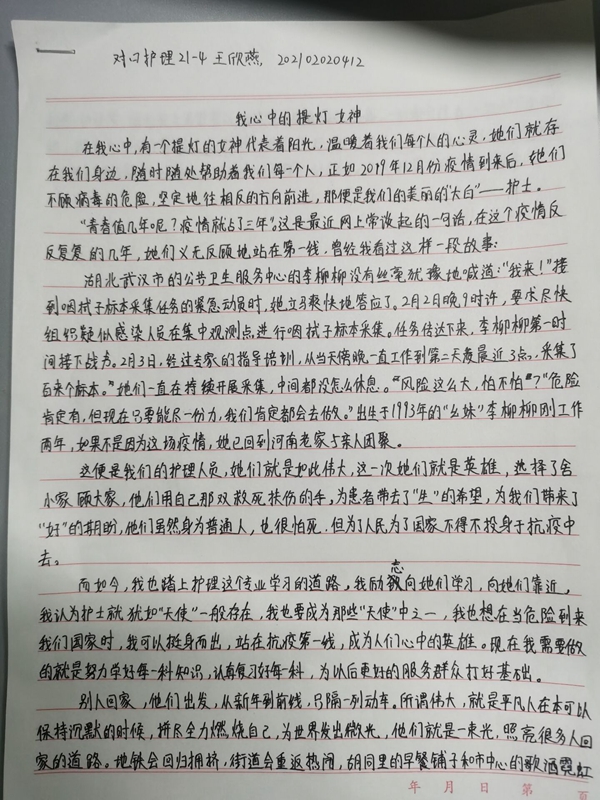 对口护理21-4 王欣燕, 202102020412
我心中的提灯女神
在我心中,有一个提灯的女神代表着阳光,温暖着我们每个人的心灵,她们就存
在我们身边,随时随处帮助着我们每一个人,正如2019年12月份疫情到来后,她们
不顾病毒的危险,坚定地往相反的方向前进,那便是我们的美丽的"大白"——护士。
"青春值几年呢?疫情就占了三年"。这是最近网上常谈起的一句话,在这个疫情反
反复复的几年,她们义无反顾地站在第一线,曾经我看过这样一段故事:
湖北武汉市的公共卫生服务中心的李柳柳没有丝毫犹豫地喊道:"我来!"接
到咽拭子标本采集任务的紧急动员时,她立马爽快地答应了。2月2日晚9时许,要求尽快
组织疑似感染人员在集中观测点进行咽拭子标本采集。任务传达下来,李柳柳第一时
间接下战斗。2月3日,经过专家的指导培训,从当天傍晚一直工作到第二天凌晨近3点,采集了
百来个标本。"她们一直在持续开展采集,中间都没怎么休息。""风险这么大,怕不怕"?"危险
肯定有,但现在只要能尽一份力,我们肯定都会去做。"出生于1993年的"幺妹"李柳柳刚工作
两年,如果不是因为这场疫情,她已回到河南老家与亲人团聚。
这便是我们的护理人员,她们就是如此伟大,这一次她们就是英雄,选择了舍
小家顾大家,他们用自己那双救死扶伤的手,为患者带去了"生"的希望,为我们带来了
"好"的期盼,他们虽然身为普通人,也很怕死,但为了人民为了国家不得不投身于抗疫中
去。
而如今,我也踏上护理这个专业学习的道路,我励志向她们学习,向她们靠近,
我认为护士就犹如"天使"一般存在,我也要成为那些"天使"中之一,我也想在当危险到来
我们国家时,我可以挺身而出,站在抗疫第一线,成为人们心中的英雄。现在我需要做
的就是努力学好每一科知识,认真复习好每一科,为以后更好的服务群众打好基础。
别人回家,他们出发,从新年到前线,只隔一列动车。所谓伟大,就是平凡人在本可以
保持沉默的时候,拼尽全力燃烧自己,为世界发出微光,他们就是一束光,照亮很多人回
家的道路。地铁会回归拥挤,街道会重返热闹,胡同里的早餐铺子和市中心的歌酒霓虹
年 月 日 第 页